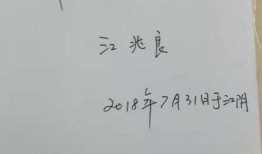 江兆良
2018年7月31日于江阴